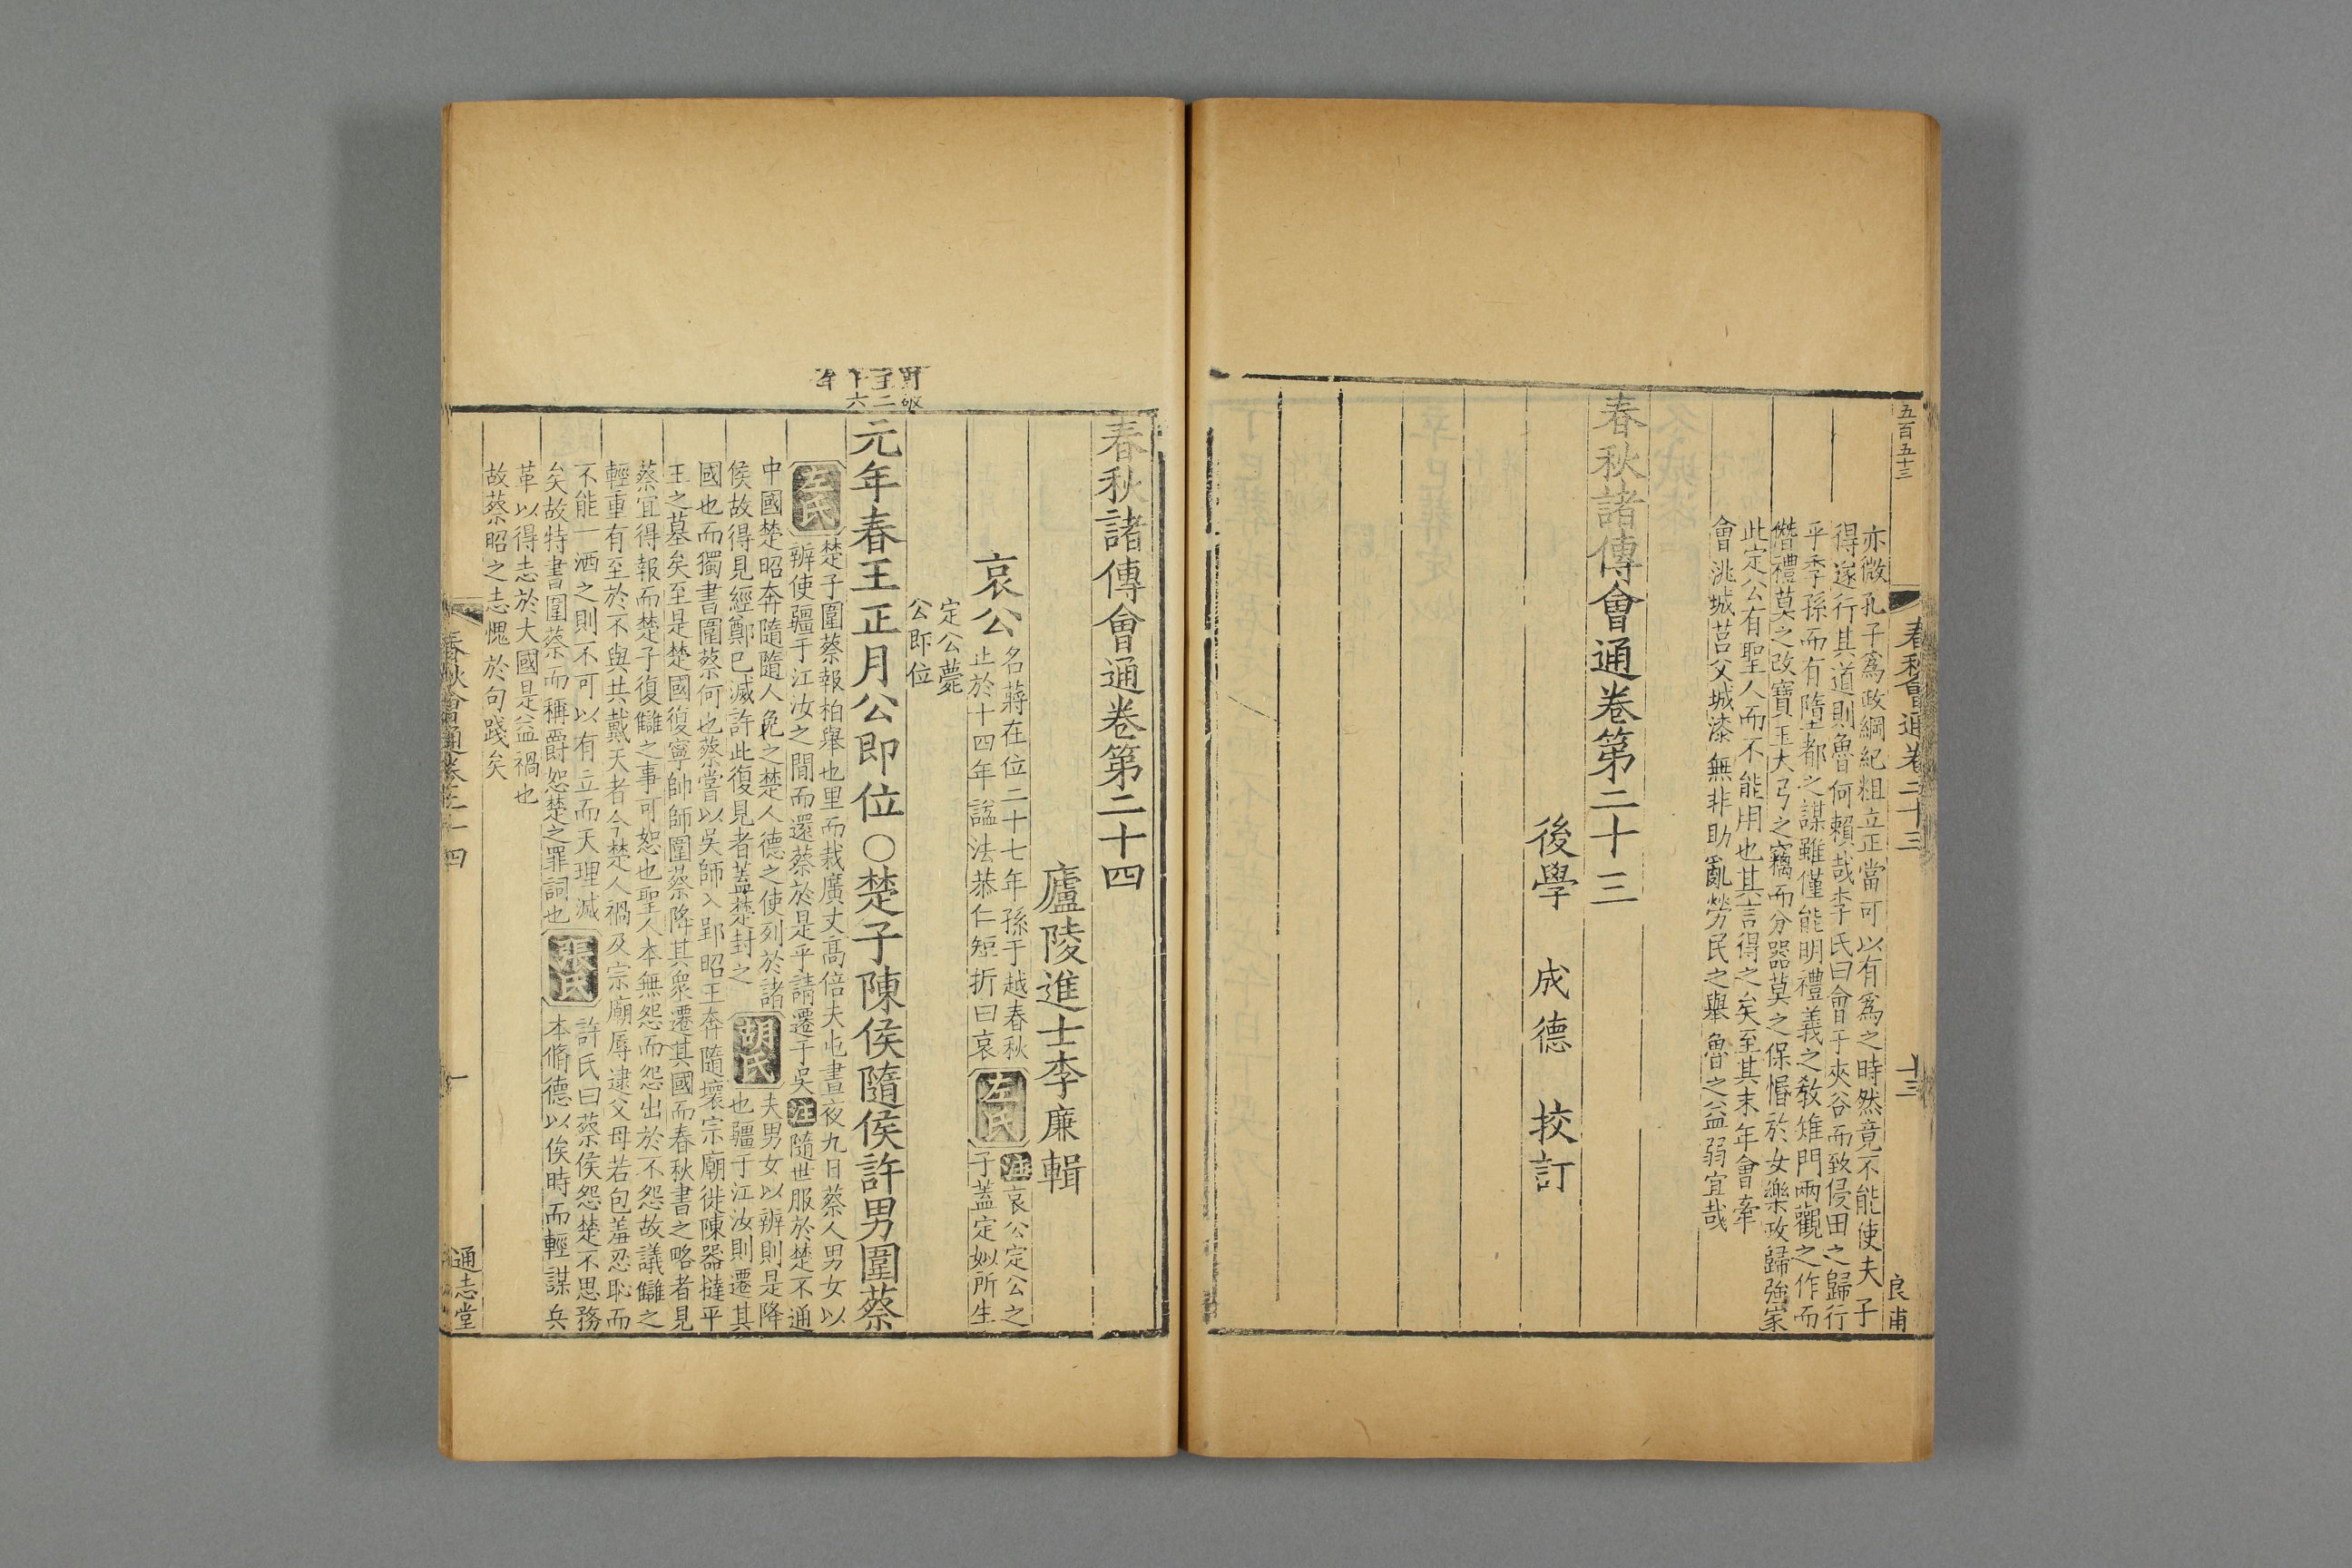 五百五十三
春秋會通卷二十三
十三
良甫
亦微孔子爲政綱紀粗立正當可以有爲之時然竟不能使夫子
得遂行其道則魯何賴哉李氏曰會于夾谷而致侵田之歸行
乎季孫而有隳都之謀雖僅能明禮義之教雉門兩觀之作而
僭禮莫之改寶玉大弓之竊而分器莫之保惛於女樂政歸強家
此定公有聖人而不能用也其言得之矣至其末年會牽
會洮城莒父城漆無非助亂勞民之舉魯之益弱宜哉
春秋諸傳會通卷第二十三
後學 成德 挍訂
春秋諸傳會通卷第二十四
廬陵進士李廉輯
哀公
名蔣在位二十七年孫于越春秋
止於十四年諡法恭仁短折曰哀
左氏
注
哀公定公之
子蓋定姒所生
定公薨
公即位
元年春王正月公即位○楚子陳侯隨侯許男圍蔡
左氏
楚子圍蔡報柏舉也里而栽廣丈高倍夫屯晝夜九日蔡人男女以
辨使疆于江汝之間而還蔡於是乎請遷于吳注隨世服於楚不通
中國楚昭奔隨隨人免之楚人德之使列於諸
侯故得見經鄭已滅許此復見者蓋楚封之
胡氏
夫男女以辨則是降
也疆于江汝則遷其
國也而獨書圍蔡何也蔡嘗以吳師入郢昭王奔隨壞宗廟徙陳器撻平
王之墓矣至是楚國復寧帥師圍蔡降其衆遷其國而春秋書之略者見
蔡宜得報而楚子復讎之事可恕也聖人本無怨而怨出於不怨故議讎之
輕重有至於不與共戴天者今楚人禍及宗廟辱逮父母若包羞忍恥而
不能一洒之則不可以有立而天理滅
矣故特書圍蔡而稱爵恕楚之罪詞也
張氏
許氏曰蔡侯怨楚不思務
本脩德以俟時而輕謀兵
革以得志於大國是益禍也
故蔡昭之志愧於句踐矣
春秋會通卷二十四
一
通志堂